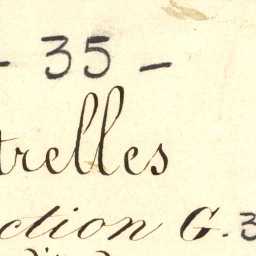 - 35 -
trelles
ction G. 3